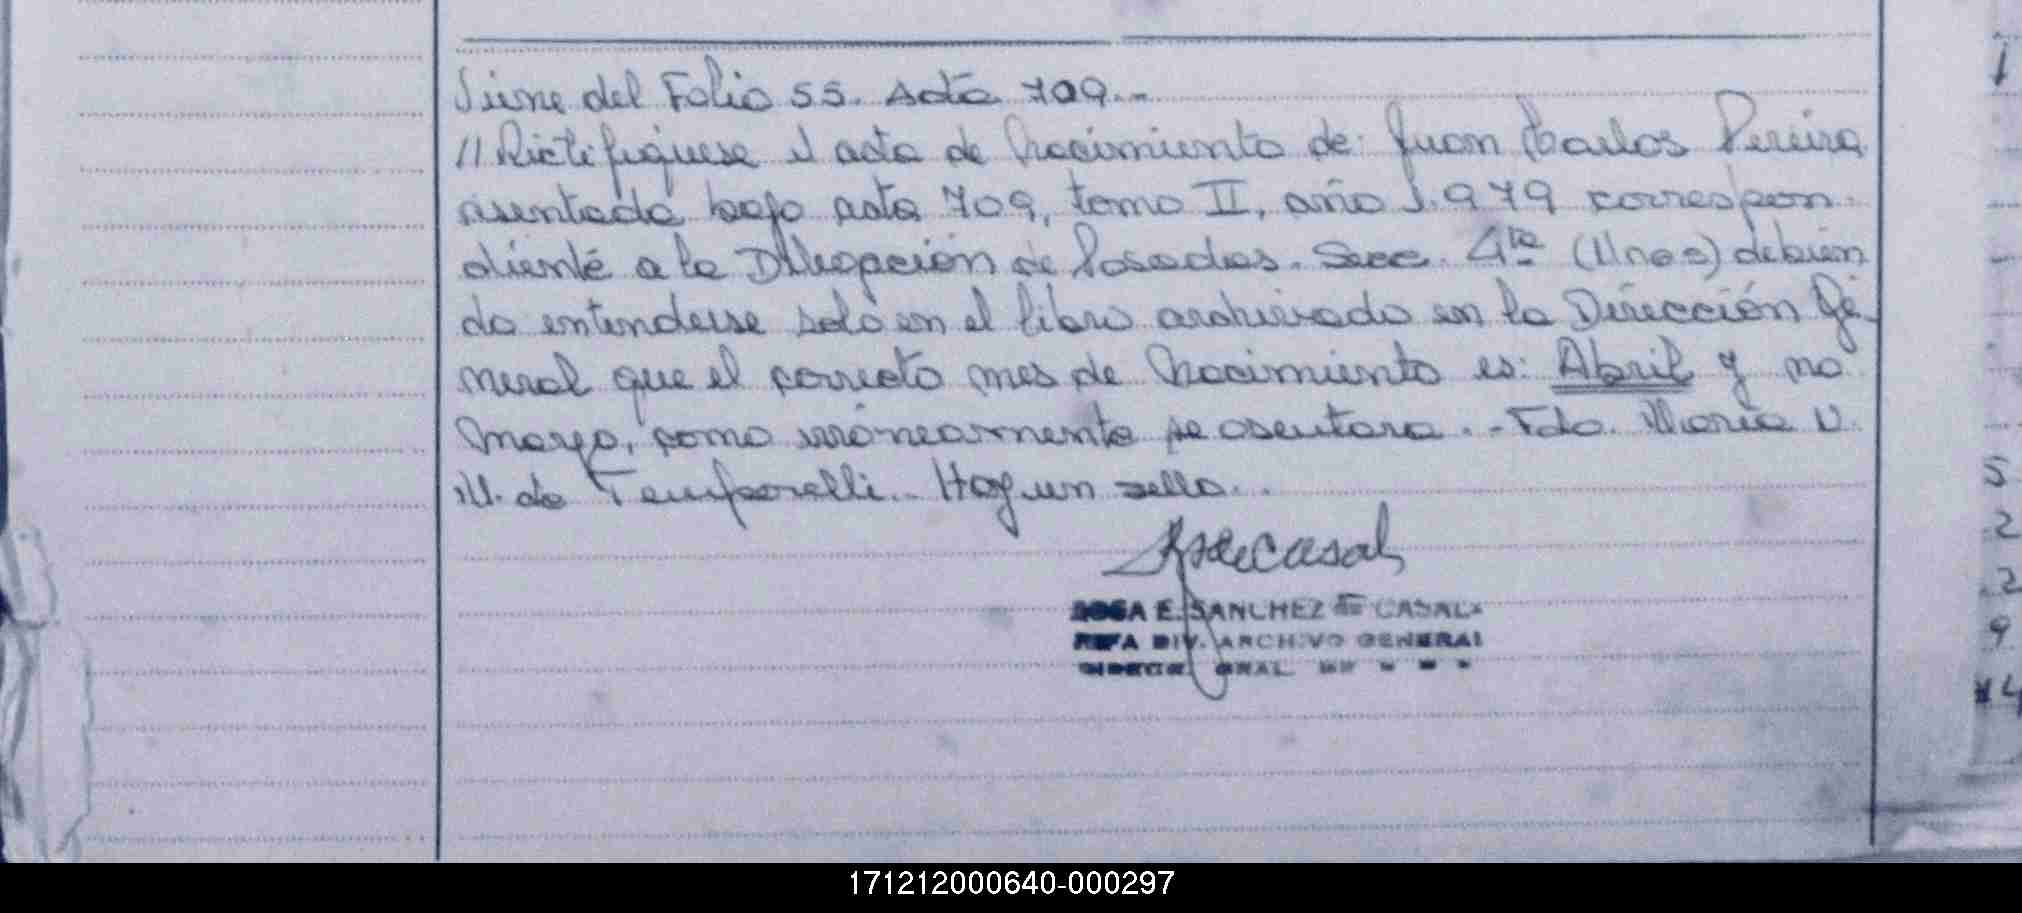 Viene del Folio 55. Acta 709.-
// Rectifiquese el acta de Nacimiento de: Juan Carlos Pereira
asentada bajo acta 709, tomo II, año 1.979 correspon-
diente a la Delegación de Posadas. Secc. 4ta (Unos) debien
do entenderse solo en el libro archivado en la Dirección Ge-
neral que el correcto mes de Nacimiento es: Abril y no
marzo, como erróneamente se asentara.- Fdo. María V.
M. de Temporelli.- Hay un sello.-
RSdeCasal
ROSA E. SANCHEZ DE CASAL
JEFA DIV. ARCHIVO GENERAL
GRAL
1
5
2
2
9
4
171212000640-000297